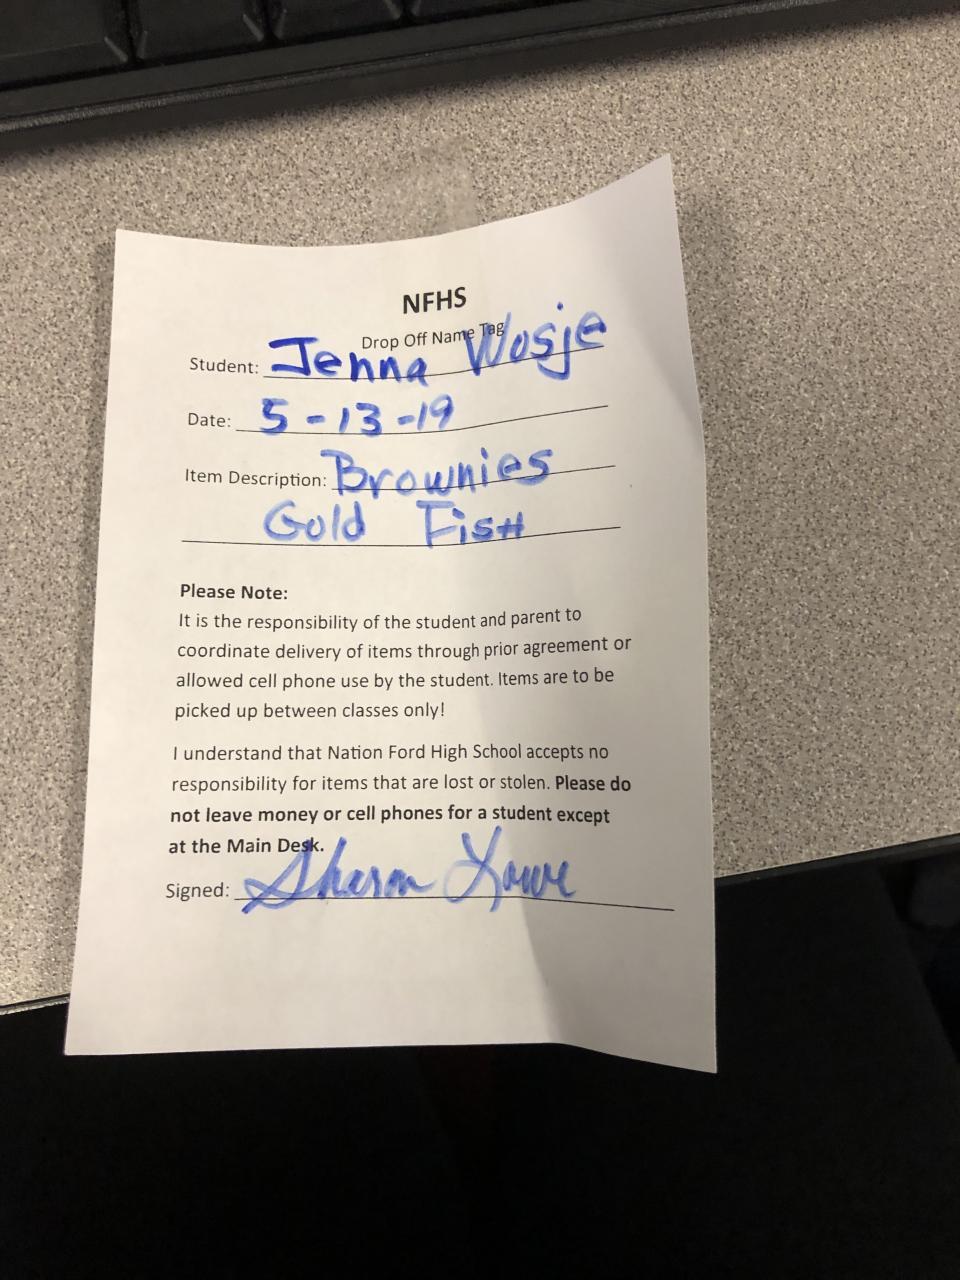 NFHS
Drop Off Name Tag
Student: Jenna Wosje
Date: 5-13-19
Item Description: Brownies
Gold Fish
Please Note:
It is the responsibility of the student and parent to
coordinate delivery of items through prior agreement or
allowed cell phone use by the student. Items are to be
picked up between classes only!
I understand that Nation Ford High School accepts no
responsibility for items that are lost or stolen. Please do
not leave money or cell phones for a student except
at the Main Desk.
Signed: Sharon Lowe